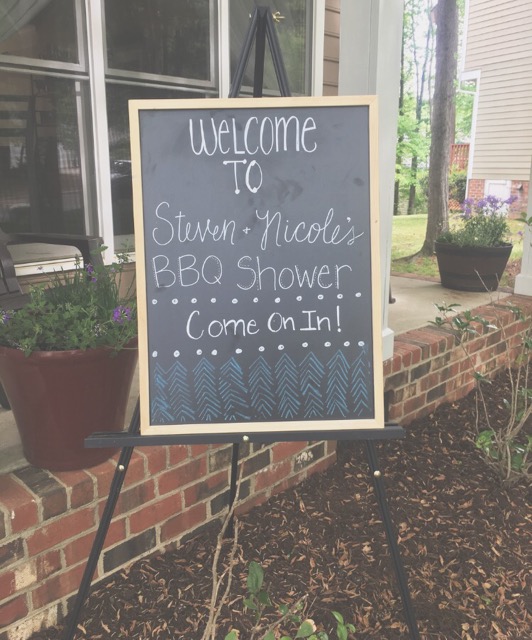 WELCOME
TO
Steven + Nicole's
BBQ Shower
Come On In!